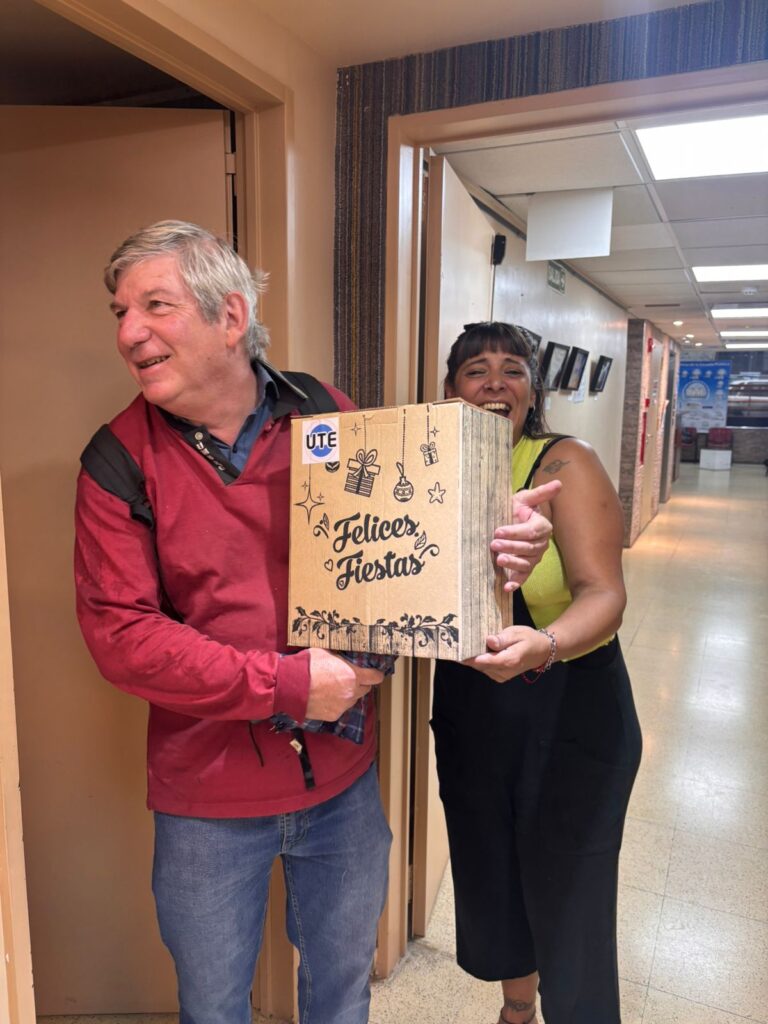 UTE
Felices
Fiestas